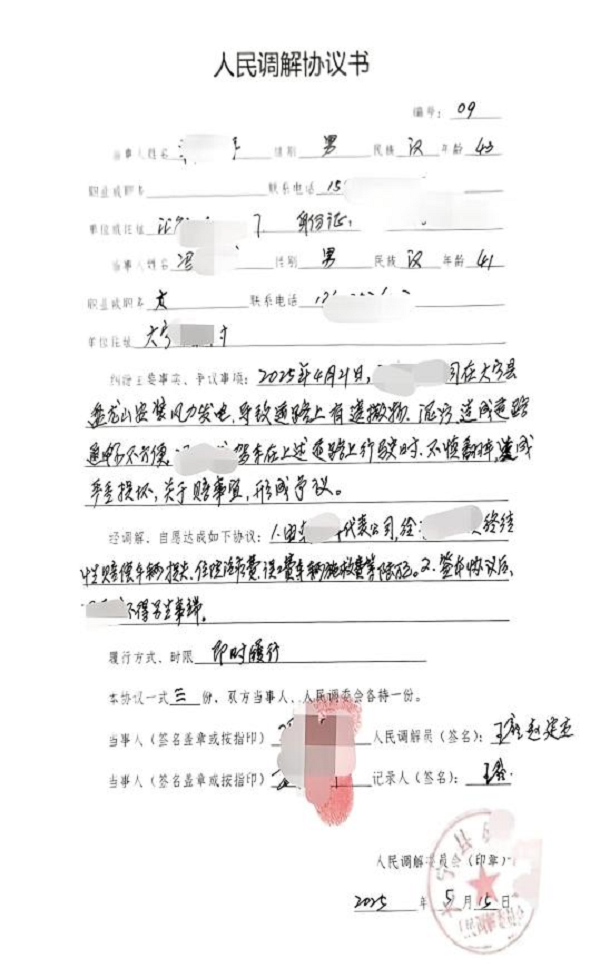 人民调解协议书
编号：09
当事人姓名 性别 男 民族 汉 年龄 43
职业或职务 联系电话 15
单位或住址 身份证：
当事人姓名 冯 性别 男 民族 汉 年龄 41
职业或职务 农 联系电话
单位住址 大宁 村
纠纷主要事实、争议事项：2025年4月21日， 司在大宁县
盘龙山安装风力发电，导致道路上有遗撒物，泥污，造成道路
通畅不方便， 驾车在上述道路上行驶时，不慎翻摔，造成
车辆损坏，关于赔事宜，形成争议。
经调解，自愿达成如下协议：1. 代表公司，给 终结
性赔偿车辆损失、住院治疗费、误工费车辆施救费等 。2、签本协议后，
不得另生事端。
履行方式、时限 即时履行
本协议一式三份，双方当事人、人民调委会各持一份。
当事人（签名盖章或按指印） 人民调解员（签名）：
当事人（签名盖章或按指印） 记录人（签名）：
人民调解委员会（印章）
2025 年 5 月 15 日